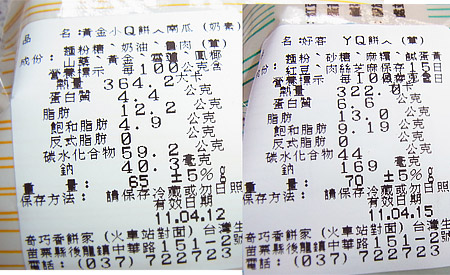 品 名:黃金小Q餅へ南瓜(奶素)
成份:麵粉糖、奶油、魯肉(葷)
山藥、黃金、雪蓮、鳳梨
營養標示 每100公克
熱量 364.2大卡
蛋白質 4.4 公克
脂肪 12.2 公克
飽和脂肪 4.9 公克
反式脂肪 0 公克
碳水化合物 59.2 公克
鈉 40.3 毫克
重量: 65 ±5%g
保存方法: 請保存冷藏或勿日照
有效日期
11.04.12
奇巧香餅家(火車站對面)台灣生
苗栗縣後龍鎮中華路151-2號
電話:(037)722723
名:好客 YQ餅へ(葷)
份:麵粉、砂糖、麻油、鹹蛋黃
紅豆、肉鬆芝麻保存15日
營養標示 每100公克
熱量 322.0大卡
蛋白質 6.6 公克
脂肪 13.0 公克
飽和脂肪 9.19 公克
反式脂肪 0
碳水化合物 44 公克
鈉 169 毫克
重量: 70 ±5%g
保存方法: 請保存冷藏或勿日照
有效日期
11.04.15
奇巧香餅家(火車站對面)台灣
苗栗縣後龍鎮中華路151-2
電話:(037)722723